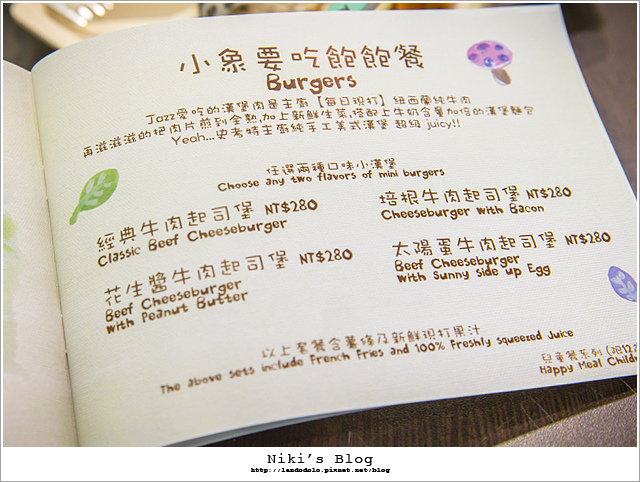 小象要吃飽飽餐
Burgers
Jazz愛吃的漢堡肉是主廚【每日現打】紐西蘭純牛肉
再滋滋滋的把肉片煎到全熟,加上新鮮生菜,搭配上牛奶含量加倍的漢堡麵包
Yeah...史考特主廚純手工美式漢堡 超級 juicy!!
任選兩種口味小漢堡
Choose any two flavors of mini burgers
經典牛肉起司堡 NT$280
Classic Beef Cheeseburger
培根牛肉起司堡 NT$280
Cheeseburger with Bacon
花生醬牛肉起司堡 NT$280
Beef Cheeseburger
with Peanut Butter
太陽蛋牛肉起司堡 NT$280
Beef Cheeseburger
with Sunny side up Egg
以上套餐含薯條及新鮮現打果汁
The above sets include French Fries and 100% Freshly squeezed Juice
兒童餐系列 (限12
Happy Meal Child
Niki's Blog
http://landodolo.pixnet.net/blog